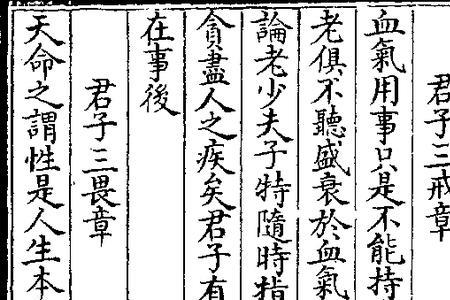 君子三戒章
血氣用事只是不能持
老俱不聽盛衰於血氣
論老少夫子特隨時指
貪盡人之疾矣君子有
在事後
君子三畏章
天命之謂性是人生本